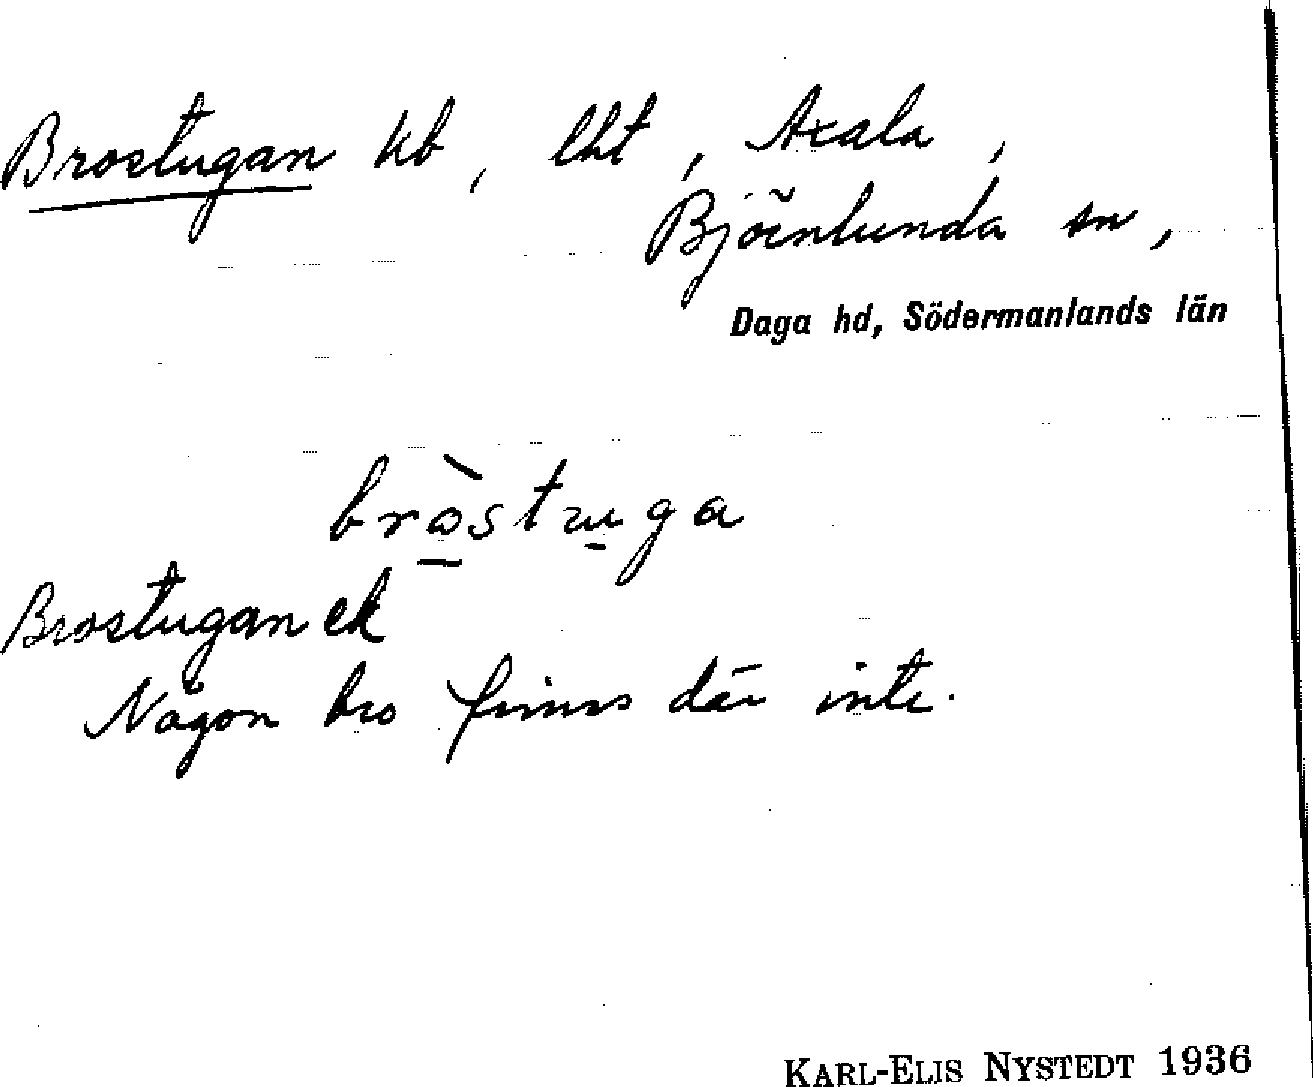 Brostugan kb, lht, Axala,
Björnlunda sn,
Daga hd, Södermanlands län
bròstuga
Brostugan ek
Någon bro finns där inte.
KARL-ELIS NYSTEDT 1936